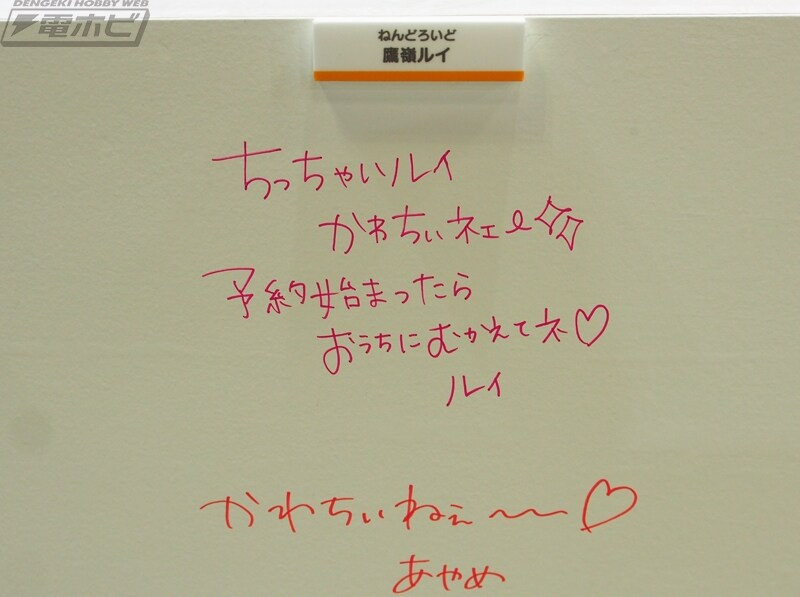 DENGEKI HOBBY WEB
電ホビ
ねんどろいど
鷹嶺ルイ
ちっちゃいルイ
かわちぃネェー
予約始まったら
おうちにむかえてネ♡
ルイ
かわちぃねぇ〜〜♡
あやめ